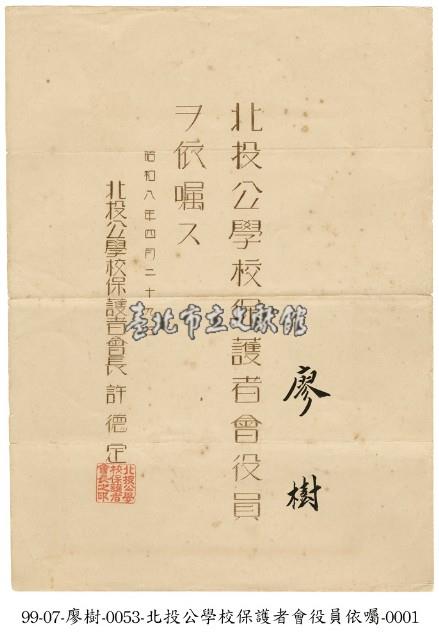 廖樹
北投公學校保護者會役員
ヲ依嘱ス
昭和八年四月二十
北投公學校保護者會長 許德定
北投公學
校保護者
會長之印
臺北市立文獻館
99-07-廖樹-0053-北投公學校保護者會役員依囑-0001